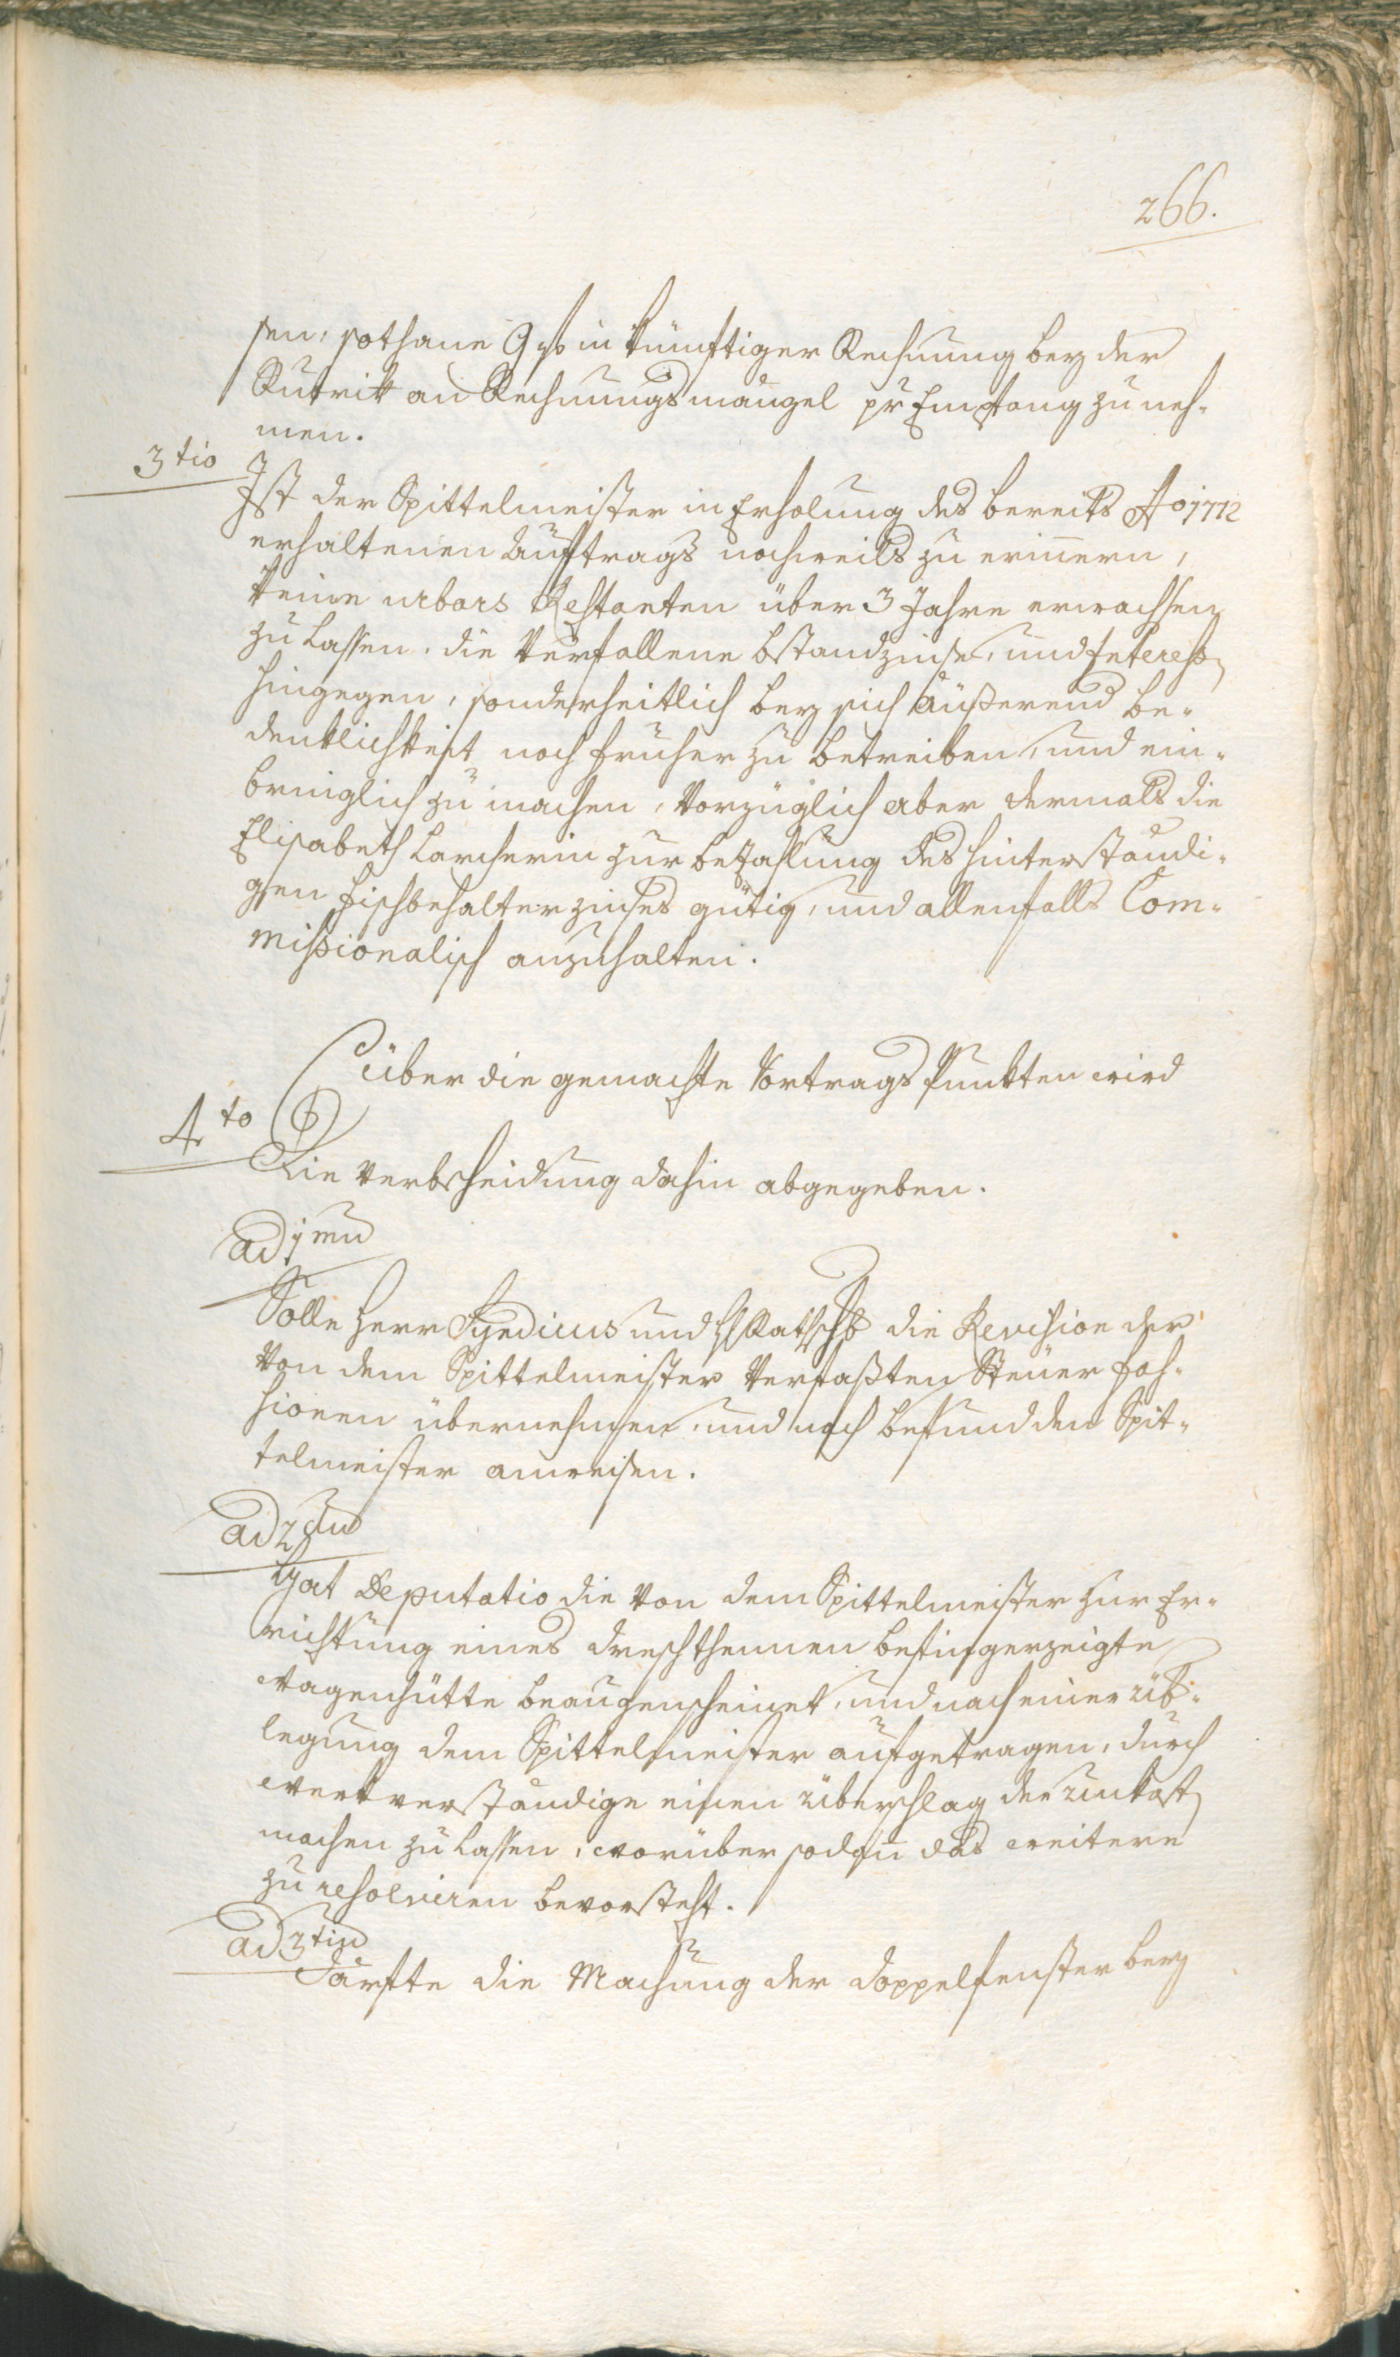 266.
sen, sothane 9 xr in künftiger Rechnung bey der
Rubrik an Rechnungsmängel pr Empfang zu neh-
men.
3tio
Ist der Spittelmeister in Erholung des bereits Ao 1772
erhaltenen Auftrags nochweils zu erinnern,
keine urbars Restanten über 3 Jahre erwachsen
zu lassen. die Verfallene bstandzinse, und Interesse
hingegen, sonderheitlich bey sich äußerend be-
denklichkeit noch früher zu betreiben, und ein-
bringlich zu machen, Vorzüglich aber dermals die
Elisabeth Larcherin zur bezahlung des hinterständi-
gen fischbehalterzinses gütig, und allenfalls Com-
missionalisch anzuhalten.
4to
über die gemachte Vortrags Punkten wird
Die verbscheidung dahin abgegeben.
ad 1mu
Solle Herr Syndicus und H Ratschb die Revision der
von dem Spittelmeister Verfaßten Steuer fas-
sionen übernehmen, und nach befund den Spit-
telmeister anweisen.
ad 2du
Hat Deputatio die von dem Spittelmeister zur Er-
richtung eines dreschthennen befingerzeigte
wagenhütte beaugenscheinet, und nach einer üb-
legung dem Spittelmeister aufgetragen, durch
werkverständige einen überschlag der unkost
machen zu lassen, worüber sodann das weitere
zu resolvieren bevorsteht.
ad 3tiu
Därfte die Machung der doppelfenster bey